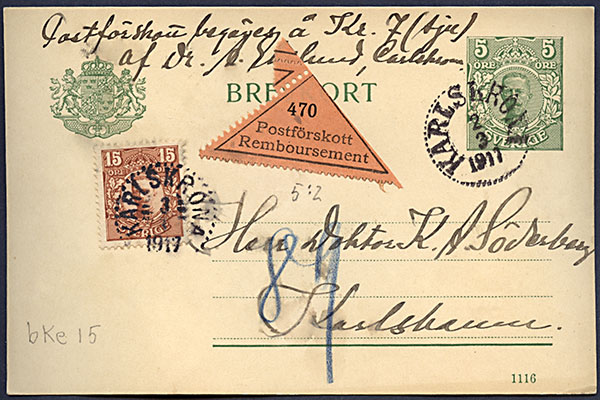 Postförskott begäres å Kr. 7 (sju)
af Dr. A. Karlskrona
5 5
ÖRE ÖRE
SVERIGE
BREFKORT
KARLSKRONA
2
3
1917
470
Postförskott
Remboursement
15 15
ÖRE ÖRE
SVERIGE
KARLSKRONA
3
1917
5:2
Herr Doktor K. A. Söderberg
89
Karlshamn.
bKe 15
1116